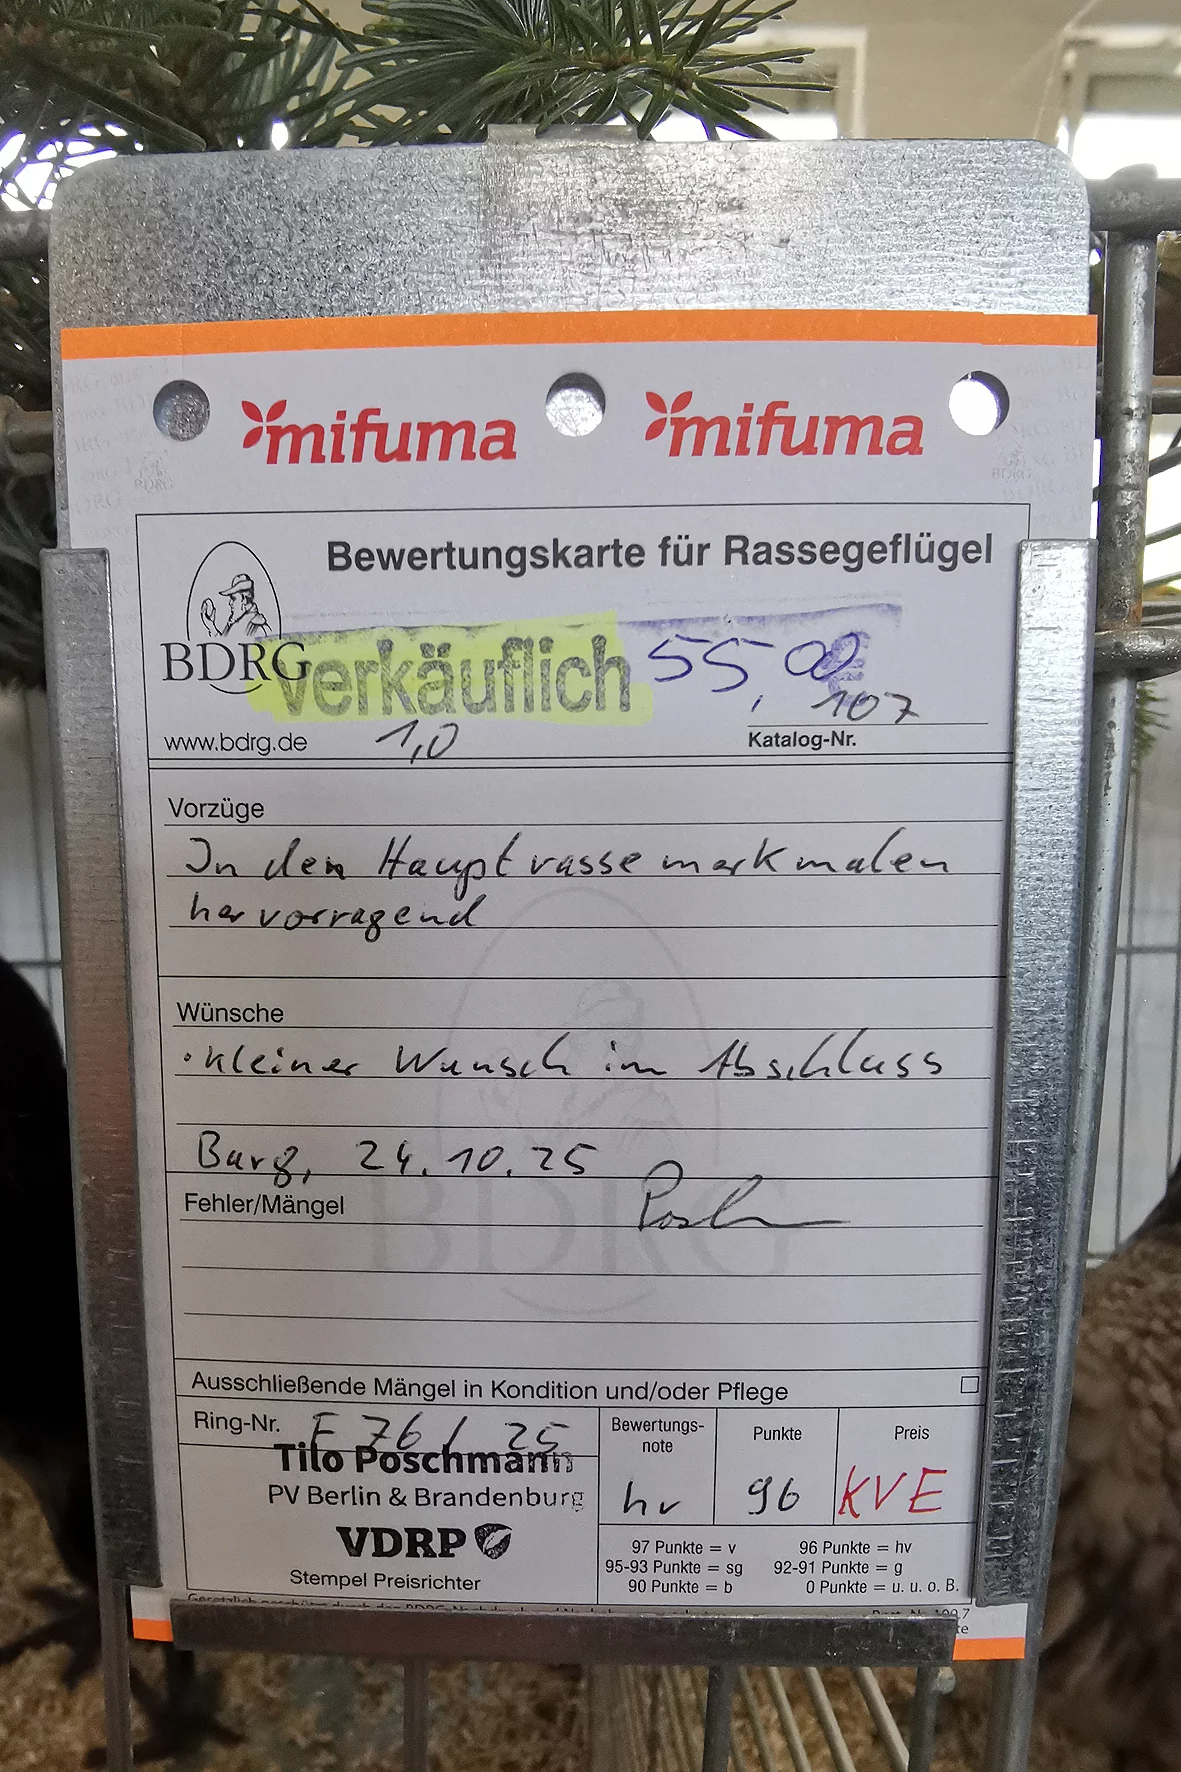 mifuma mifuma
Bewertungskarte für Rassegeflügel
BDRG verkäuflich 55,00 €
107
www.bdrg.de 1,0 Katalog-Nr.
Vorzüge
In den Hauptrassemerkmalen
hervorragend
Wünsche
· kleiner Wunsch im Abschluss
Burg, 24.10.25
Fehler/Mängel
BDRG
Ausschließende Mängel in Kondition und/oder Pflege
Ring-Nr. F 76 / 25
Tilo Poschmann
PV Berlin & Brandenburg
VDRP
Stempel Preisrichter
Bewertungs-
note
hv
Punkte
96
Preis
KVE
97 Punkte = v 96 Punkte = hv
95-93 Punkte = sg 92-91 Punkte = g
90 Punkte = b 0 Punkte = u. u. o. B.